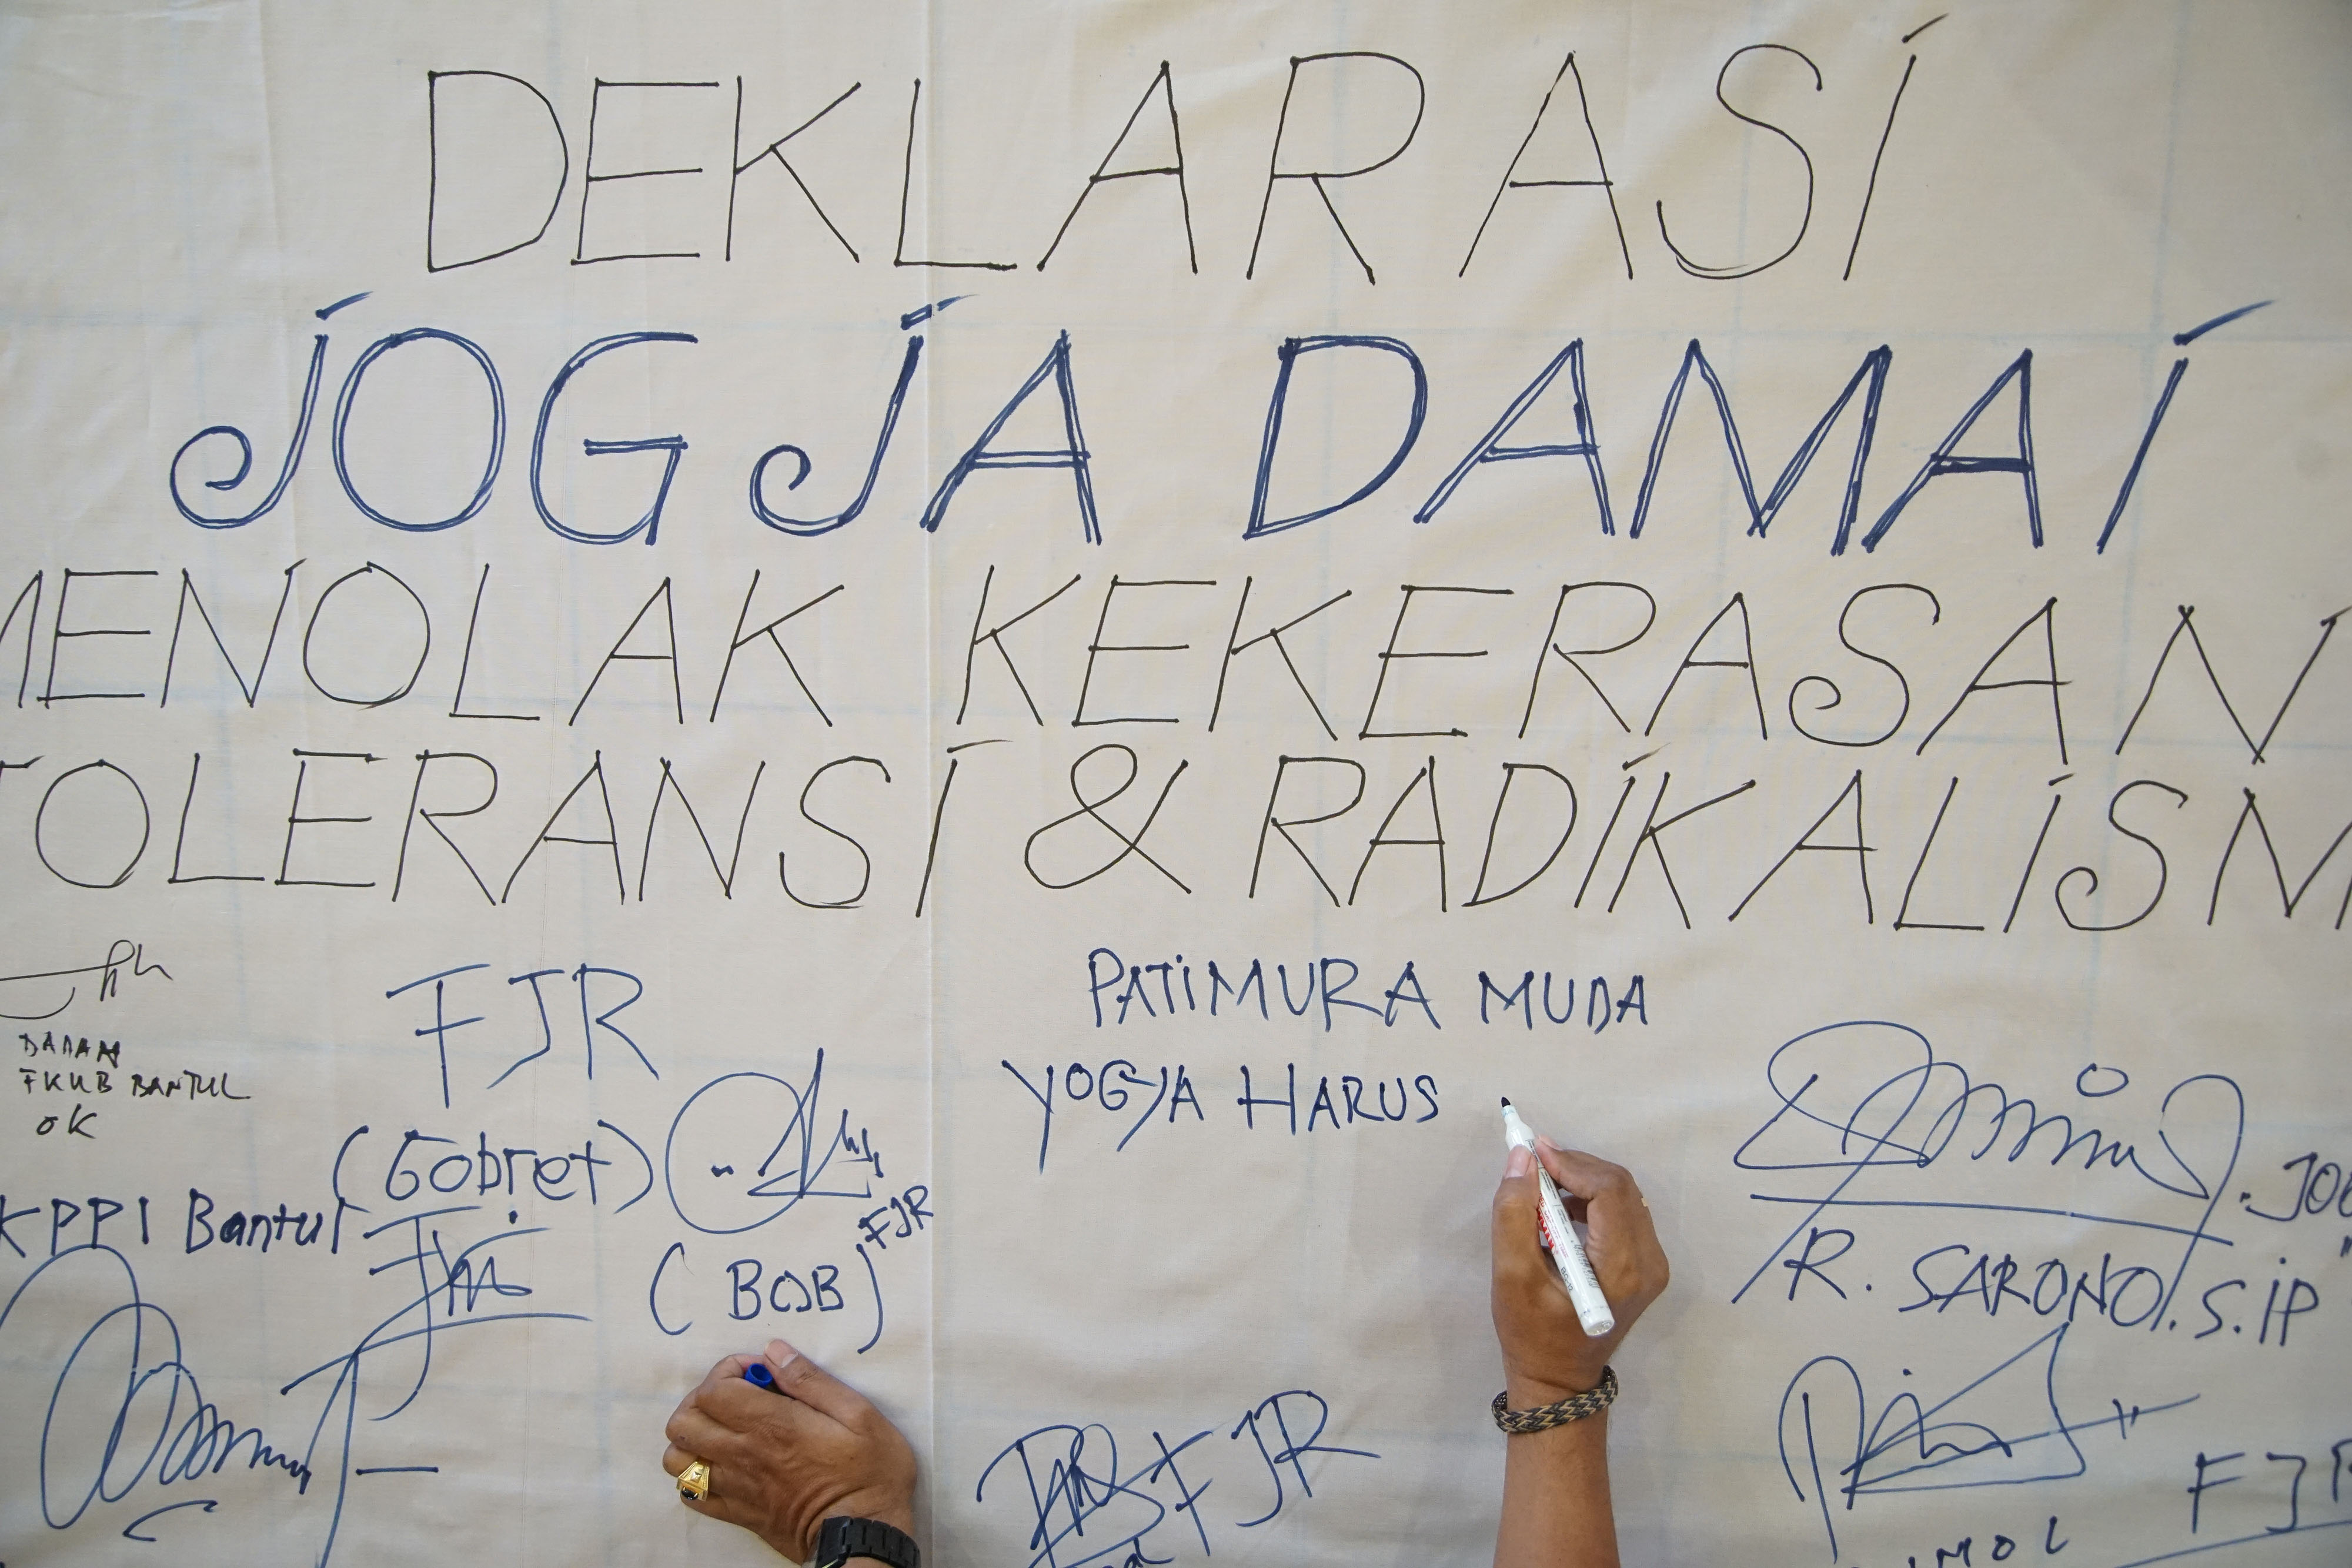 DEKLARASI
JOGJA DAMAI
MENOLAK KEKERASAN
TOLERANSI & RADIKALISM
DADAN
FKUB BANTUL
OK
FJR
(Gobret)
KPPI Bantul
FJR
(BOB)
PATIMURA MUDA
YOGYA HARUS
R. SARONO. S.IP
FJR
FJR